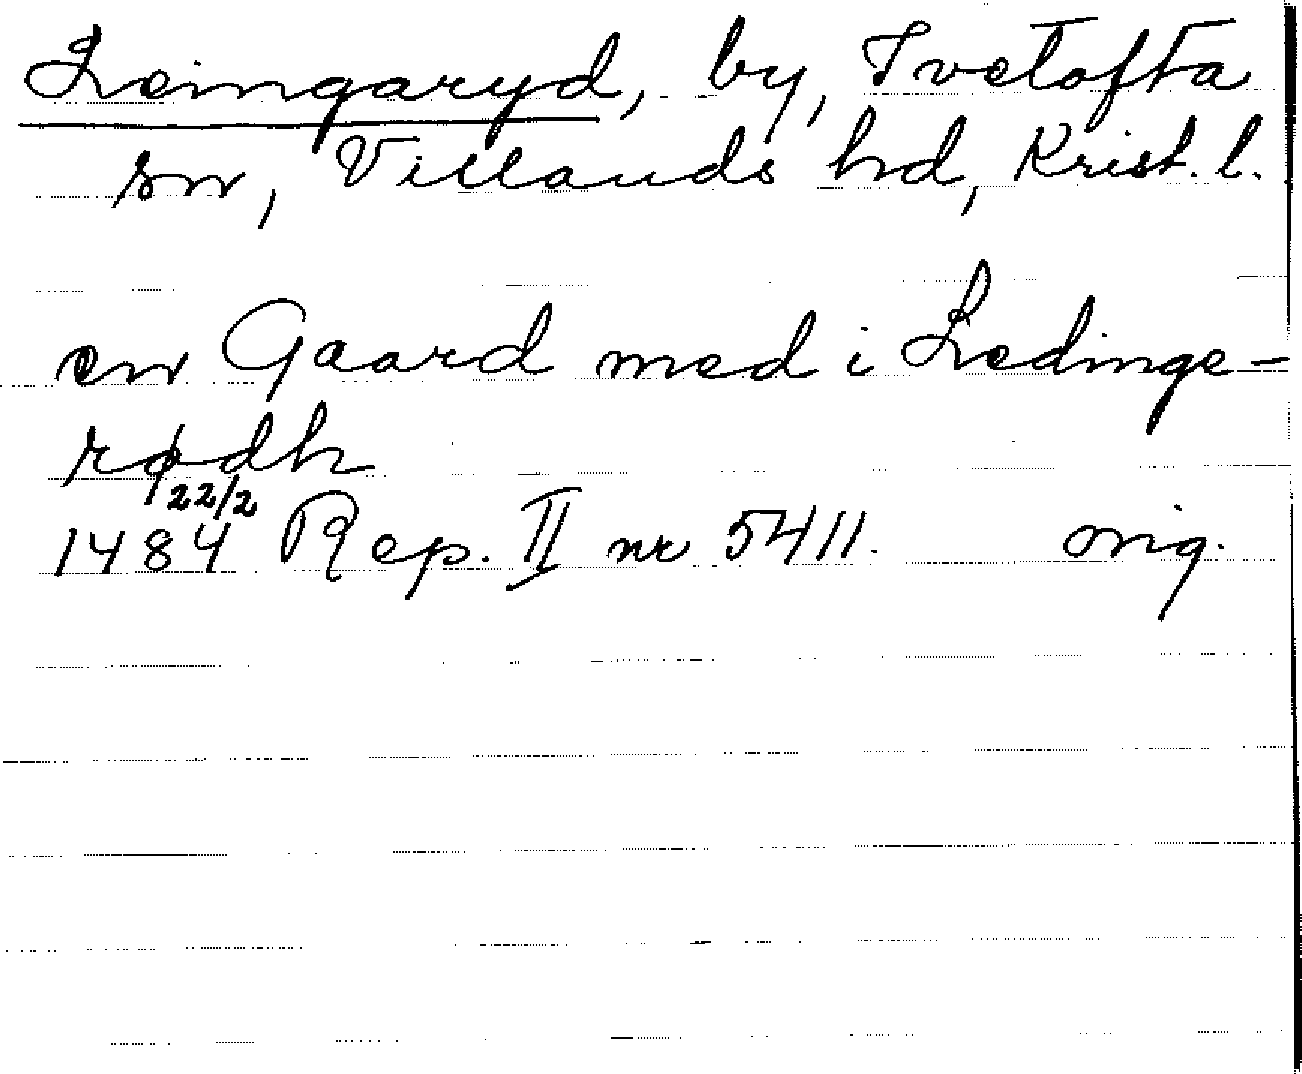 Leingaryd, by, Ivetofta
sn, Villands hd, Krist. l.
en Gaard med i Ledinge-
rødh
22/2
1484 Rep. II nr 5411. orig.